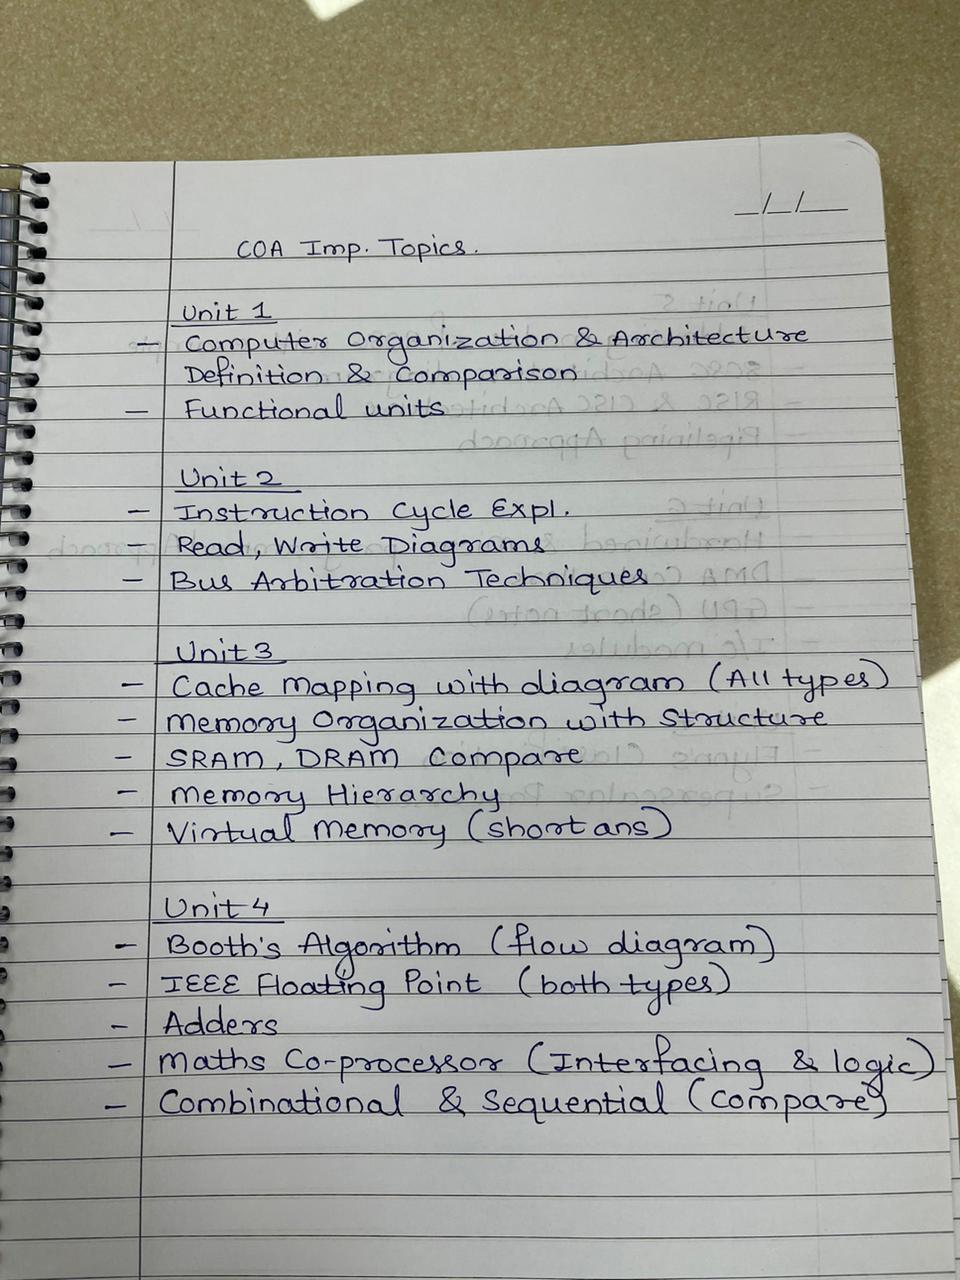 _/_/__
COA Imp. Topics.
Unit 1
- Computer Organization & Architecture
Definition & Comparison
- Functional units
Unit 2
- Instruction Cycle Expl.
- Read, Write Diagrams
- Bus Arbitration Techniques
Unit 3
- Cache Mapping with diagram (All types)
- Memory Organization with Structure
- SRAM, DRAM Compare
- Memory Hierarchy
- Virtual Memory (short ans)
Unit 4
- Booth's Algorithm (flow diagram)
- IEEE Floating Point (both types)
- Adders
- Maths Co-processor (Interfacing & logic)
- Combinational & Sequential (Compare)